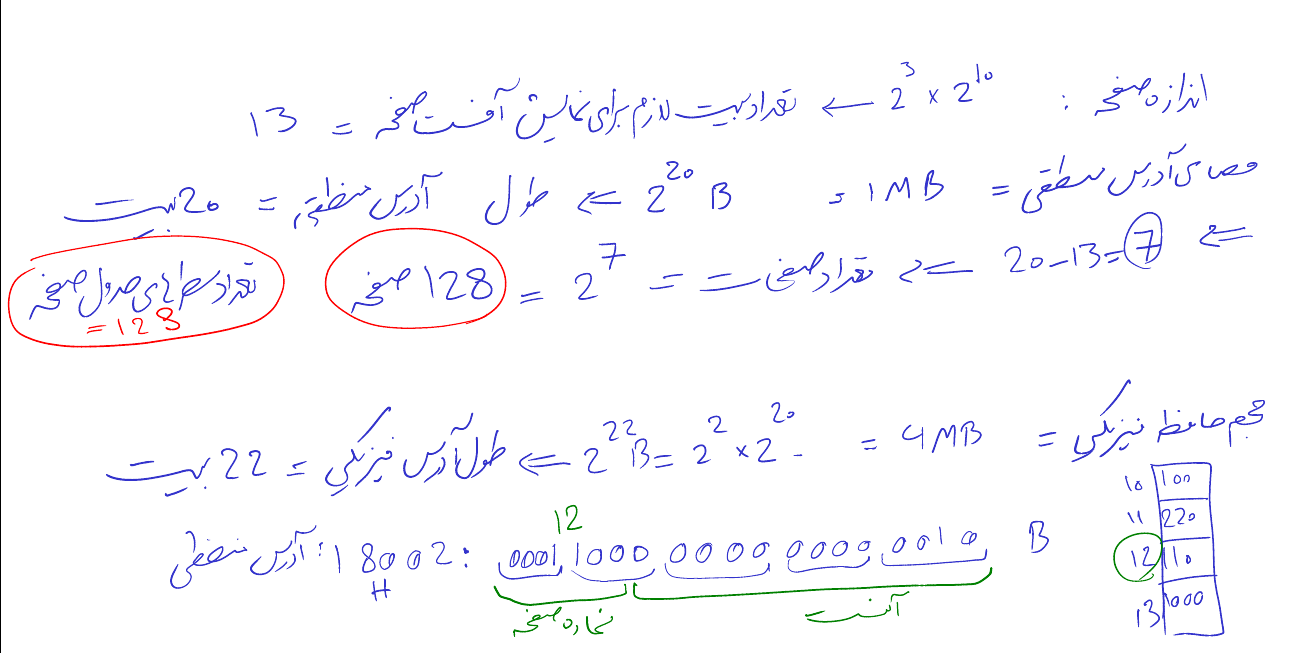 اندازه صفحه : 2^3 × 2^10 ← تعداد بیت لازم برای نمایش آفست صفحه = 13
فضای آدرس منطقی = 1 MB = 2^20 B ⇐ طول آدرس منطقی = 20 بیت
⇐ 20-13=7 ⇐ تعداد صفحات = 2^7 = 128 صفحه
تعداد سطرهای جدول صفحه
= 128
حجم حافظه فیزیکی = 4 MB = 2^2 × 2^20 = 2^22 B ⇐ طول آدرس فیزیکی = 22 بیت
10 100
11 220
12 110
13 1000
12
آدرس منطقی : 18002 H : 0001 1000 0000 0000 0010 B
شماره صفحه آفست